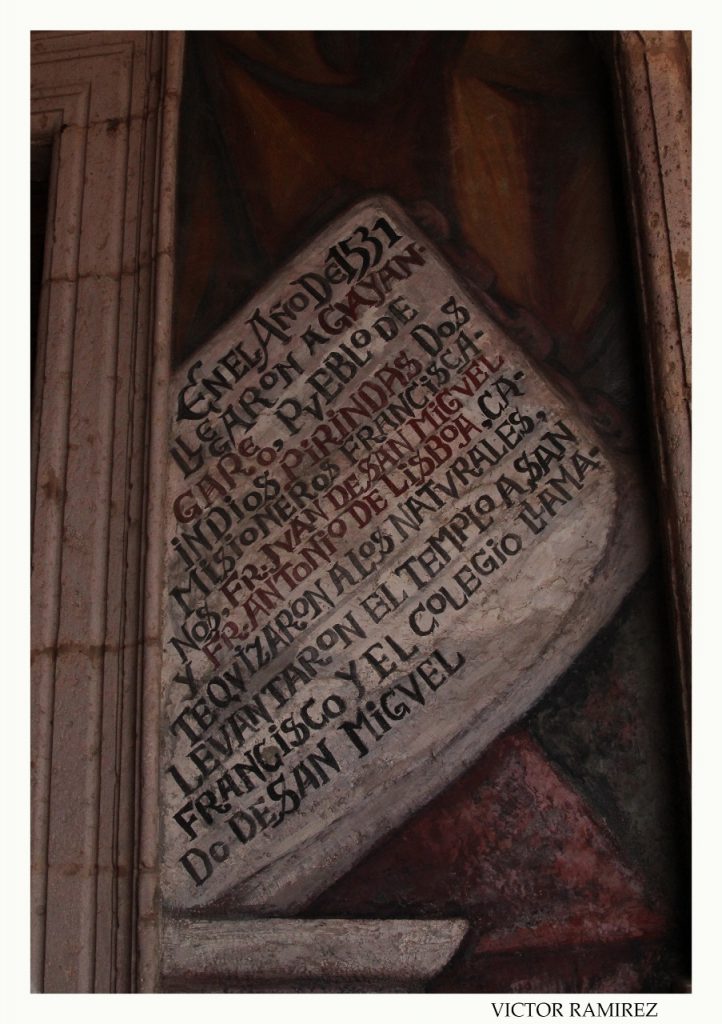 EN EL AÑO DE 1531
LLEGARON A GVAYAN-
GAREO, PVEBLO DE
INDIOS PIRINDAS DOS
MISIONEROS FRANCISCA-
NOS, FR. JVAN DE SAN MIGVEL
Y FR. ANTONIO DE LISBOA, CA-
TEQVIZARON A LOS NATVRALES,
LEVANTARON EL TEMPLO A SAN
FRANCISCO Y EL COLEGIO LLAMA-
DO DE SAN MIGVEL
VICTOR RAMIREZ